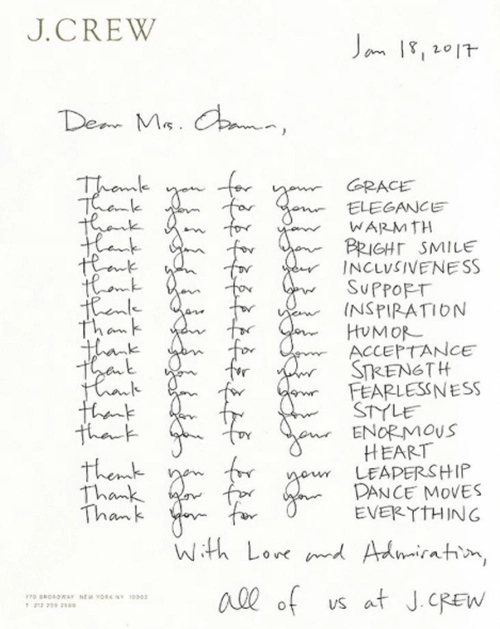 J.CREW
Jan 18, 2017
Dear Mrs. Obama,
Thank you for your GRACE
Thank you for your ELEGANCE
thank you for your WARMTH
thank you for your BRIGHT SMILE
thank you for your INCLUSIVENESS
thank you for your SUPPORT
thank you for your INSPIRATION
thank you for your HUMOR
thank you for your ACCEPTANCE
thank you for your STRENGTH
thank you for your FEARLESSNESS
thank you for your STYLE
thank you for your ENORMOUS
HEART
thank you for your LEADERSHIP
Thank you for your DANCE MOVES
Thank you for EVERYTHING
With Love and Admiration,
all of us at J.CREW
770 BROADWAY NEW YORK NY 10003
T 212 209 2500